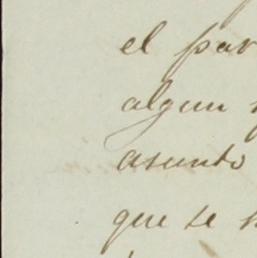 el par
algun
asunto
que se